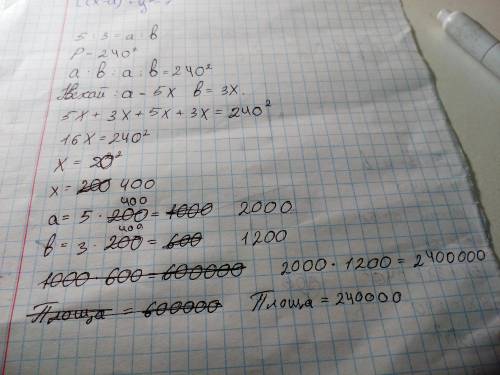 5 : 3 = а : в
Р - 240²
а · в : а : в = 240²
Нехай : а - 5х в = 3х.
5х + 3х + 5х + 3х = 240²
16х = 240²
х = 20²
х = 200 400
а = 5 · 200 400 = 1000 2000
в = 3 · 200 400 = 600 1200
1000 · 600 = 600000 2000 · 1200 = 2400000
Площа = 600000 Площа = 240000